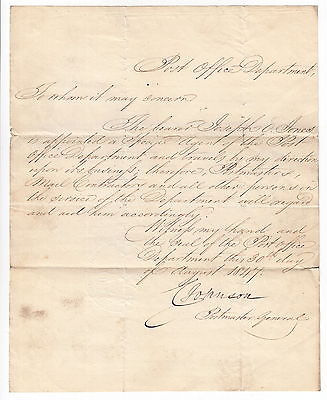 Post Office Department,
To whome it may concern
The bearer Joseph C. Jones
is appointed a Special Agent of the Post
Office Department and travels by my direction
upon its business, therefore, Postmasters,
Mail Contractors and all other persons in
the service of the Department will regard
and aid him accordingly.
Witness my hand and
the Seal of the Post office
Department this 30th day
of August 1847.
C Johnson
Postmaster General